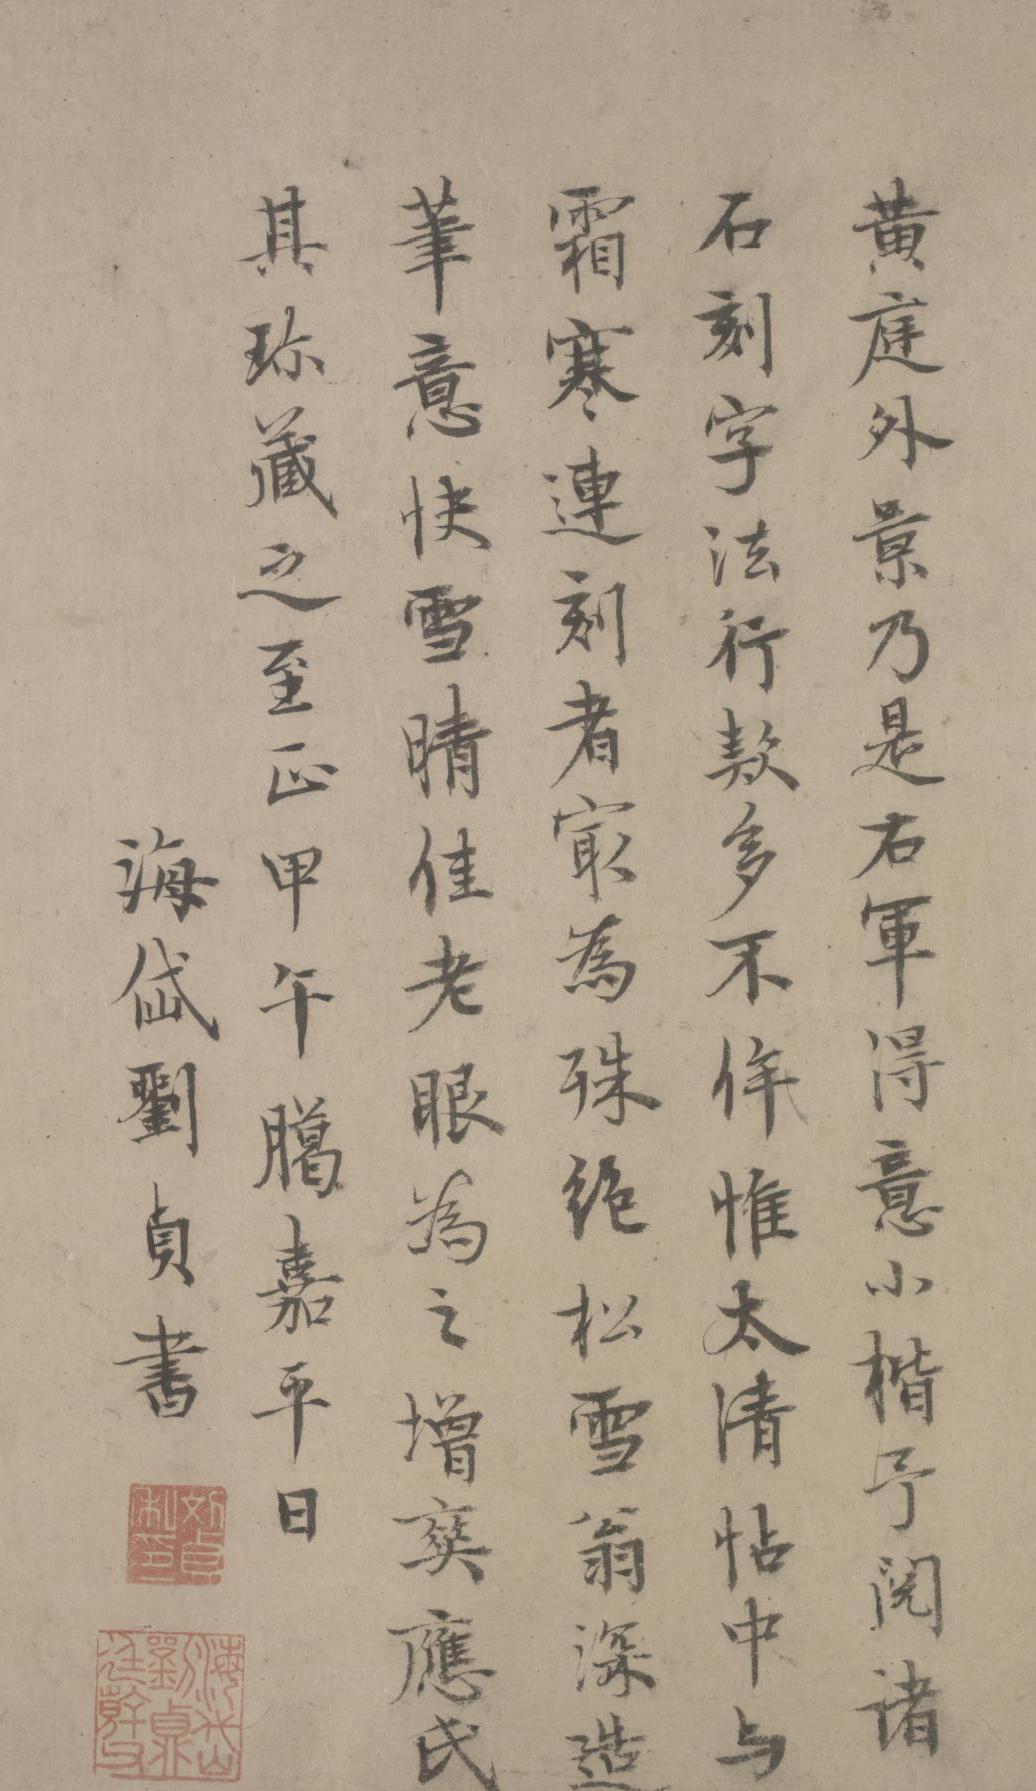 黄庭外景乃是右軍得意小楷予閱諸
石刻字法行款多不侔惟太清帖中与
霜寒連刻者㝡為殊絶松雪翁深造
筆意快雪晴佳老眼為之增爽應氏
其珎藏之至正甲午臈嘉平日
海岱劉貞書
海岱劉貞